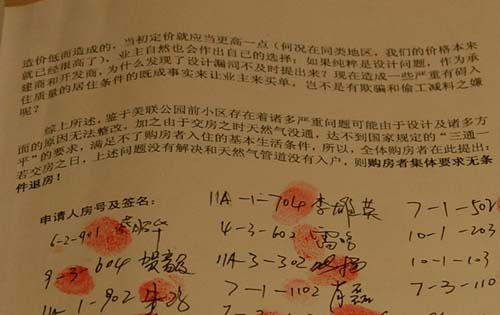 造价低而造成的，当初定价就应当更高一点（何况在同类地区，我们的价格本来
就已经很高了），业主自然也会作出自己的选择；如果纯粹是设计问题，作为承
建商和开发商，为什么发现了设计漏洞不及时提出来？现在造成一些严重有碍入
住质量的居住条件的既成事实来让业主来买单，岂不是有欺骗和偷工减料之嫌
呢？
综上所述，鉴于美联公园前小区存在着诸多严重问题可能由于设计及诸多方
面的原因无法整改，加之由于交房之时天然气没通，达不到国家规定的“三通一
平”的要求，满足不了购房者入住的基本生活条件，所以，全体购房者在此提出：
若交房之日，上述问题没有解决和天然气管道没有入户，则购房者集体要求无条
件退房！
申请人房号及签名：
11A-1-704 李 英 7-1-502
6-2-901 4-3-602 10-1-203
9-3-604 11A-3-302 10-1-103
11A-1-902 7-1-1102 7-3-110